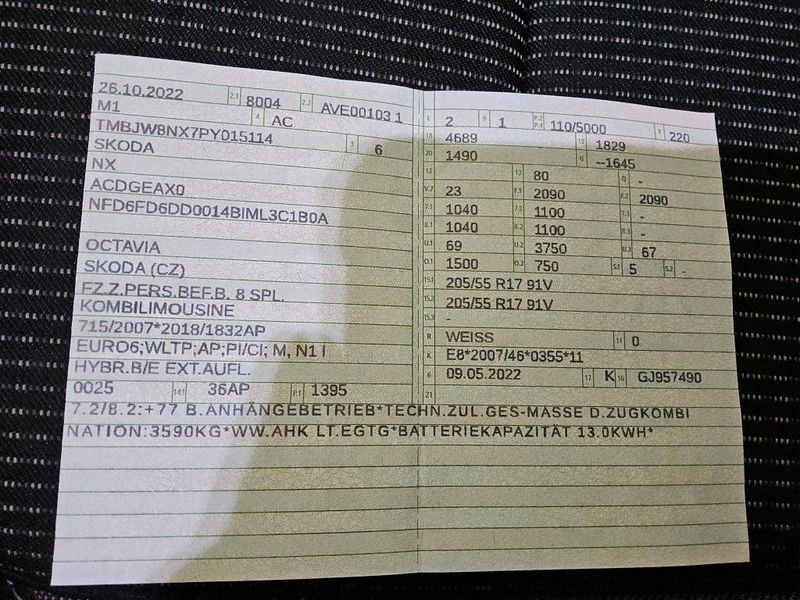 26.10.2022 2.1 8004 2.2 AVE00103 1
M1 4 AC
TMBJW8NX7PY015114 3 6
SKODA
NX
ACDGEAX0
NFD6FD6DD0014BIML3C1B0A
OCTAVIA
SKODA (CZ)
FZ.Z.PERS.BEF.B. 8 SPL.
KOMBILIMOUSINE
715/2007*2018/1832AP
EURO6;WLTP;AP;PI/CI; M, N1 I
HYBR.B/E EXT.AUFL.
0025 14.1 36AP P.1 1395
L 2 9 1 P.2 P.4 110/5000 T 220
18 4689 19 1829
20 1490 G --1645
12 13 80 Q -
V.7 23 F.1 2090 F.2 2090
7.1 1040 7.2 1100 7.3 -
8.1 1040 8.2 1100 8.3 -
U.1 69 U.2 3750 U.3 67
O.1 1500 O.2 750 S.1 5 S.2 -
15.1 205/55 R17 91V
15.2 205/55 R17 91V
15.3 -
R WEISS 11 0
K E8*2007/46*0355*11
6 09.05.2022 17 K 16 GJ957490
21
7.2/8.2:+77 B.ANHÄNGEBETRIEB*TECHN.ZUL.GES-MASSE D.ZUGKOMBI
NATION:3590KG*WW.AHK LT.EGTG*BATTERIEKAPAZITÄT 13.0KWH*